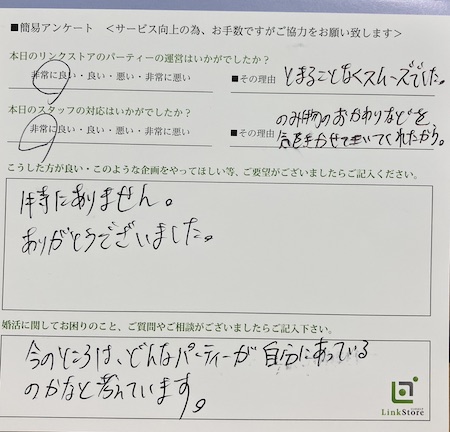 ■簡易アンケート ＜サービス向上の為、お手数ですがご協力をお願い致します＞
本日のリンクストアのパーティーの運営はいかがでしたか？
非常に良い・良い・悪い・非常に悪い
■その理由 とまることなくスムーズでした。
本日のスタッフの対応はいかがでしたか？
非常に良い・良い・悪い・非常に悪い
■その理由 のみ物のおかわりなどを
気をきかせて聞いてくれたから。
こうした方が良い・このような企画をやってほしい等、ご要望がございましたらご記入ください。
特にありません。
ありがとうございました。
婚活に関してお困りのこと、ご質問やご相談がございましたらご記入下さい。
今のところは、どんなパーティーが自分にあっている
のかなと考えています。
LinkStore